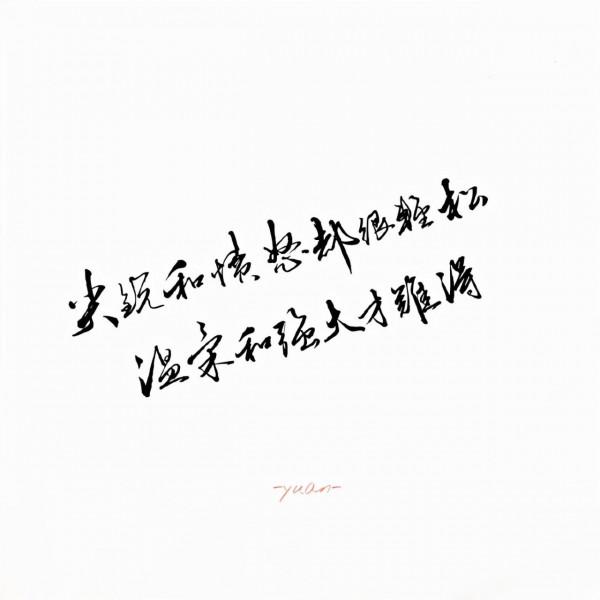 尖锐和愤怒都很輕松
温柔和强大才難得
-yuan-